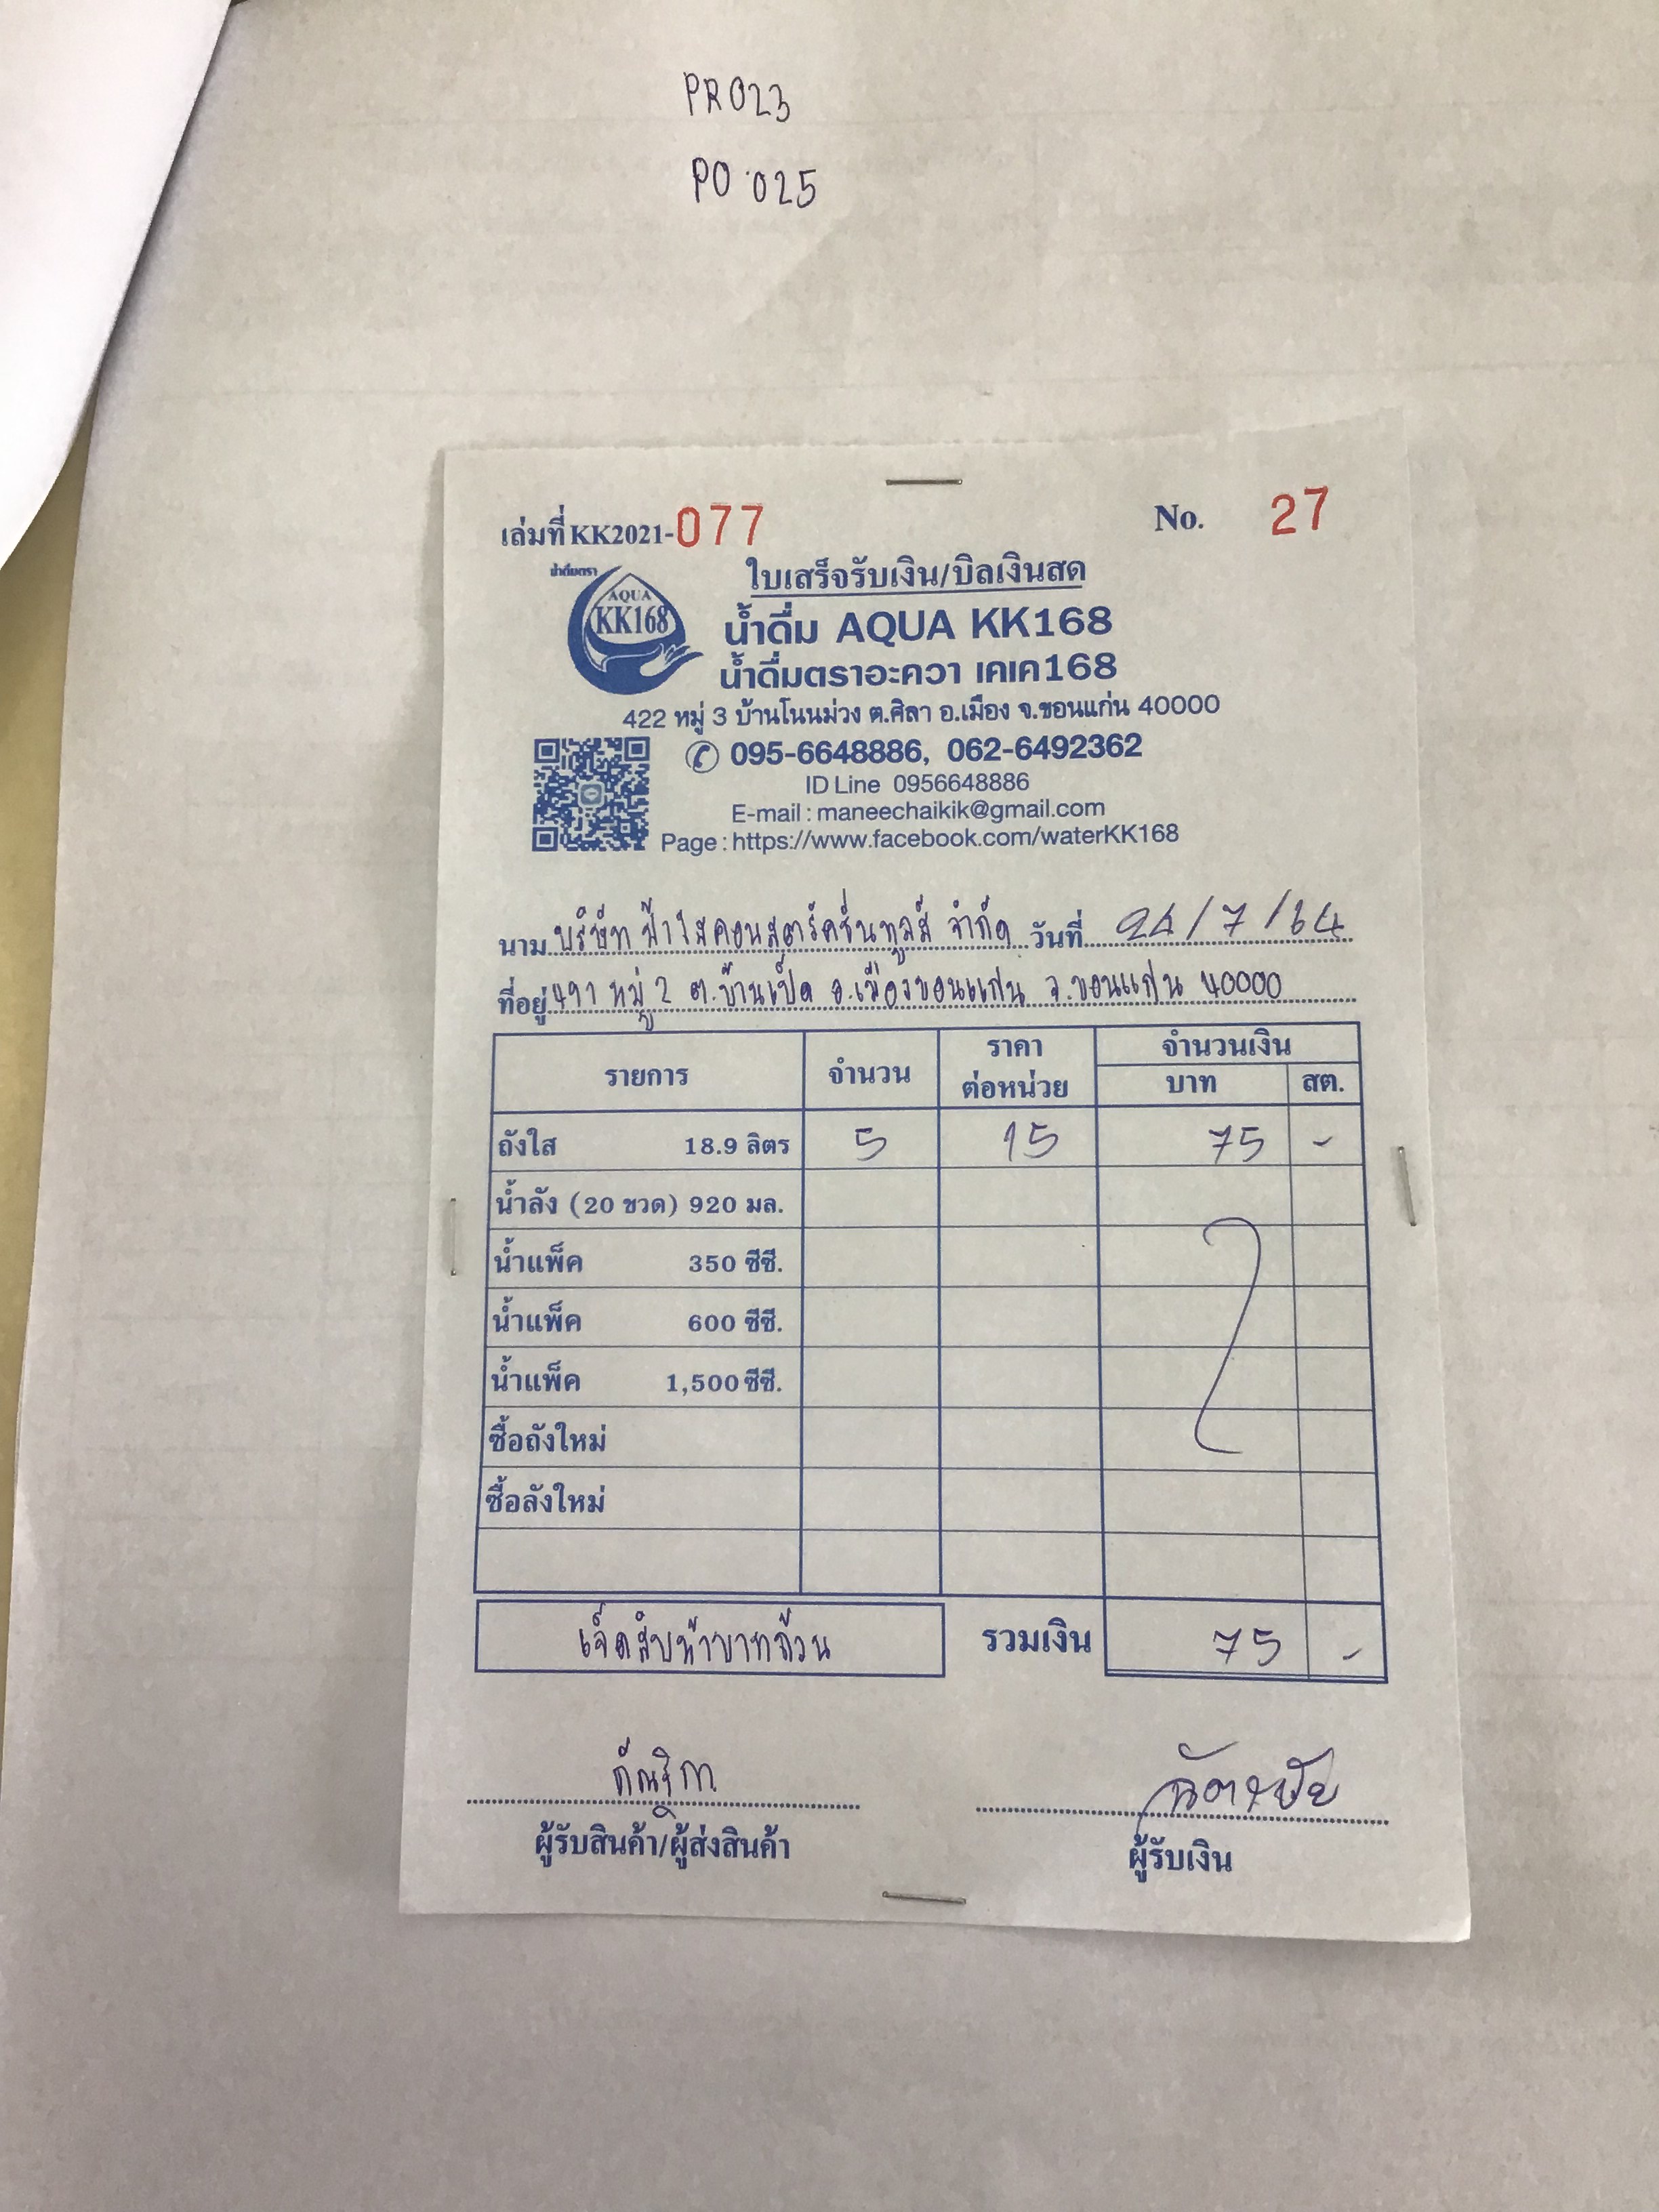 PR023
PO 025
เล่มที่ KK2021-077
No. 27
ใบเสร็จรับเงิน/บิลเงินสด
น้ำดื่มตรา
AQUA
KK168
น้ำดื่ม AQUA KK168
น้ำดื่มตราอะควา เคเค168
422 หมู่ 3 บ้านโนนม่วง ต.ศิลา อ.เมือง จ.ขอนแก่น 40000
095-6648886, 062-6492362
ID Line 0956648886
E-mail : maneechaikik@gmail.com
Page : https://www.facebook.com/waterKK168
นาม บริษัท ฟ้าใสคอนสตรัคชั่นทูลส์ จำกัด วันที่ 24/7/64
ที่อยู่ 499 หมู่ 2 ต.บ้านเป็ด อ.เมืองขอนแก่น จ.ขอนแก่น 40000
รายการ จำนวน ราคาต่อหน่วย จำนวนเงิน บาท สต.
ถังใส 18.9 ลิตร 5 15 75 -
น้ำลัง (20 ขวด) 920 มล.
น้ำแพ็ค 350 ซีซี.
น้ำแพ็ค 600 ซีซี.
น้ำแพ็ค 1,500 ซีซี.
ซื้อถังใหม่
ซื้อลังใหม่
เจ็ดสิบห้าบาทถ้วน รวมเงิน 75 -
ผู้รับสินค้า/ผู้ส่งสินค้า
ผู้รับเงิน